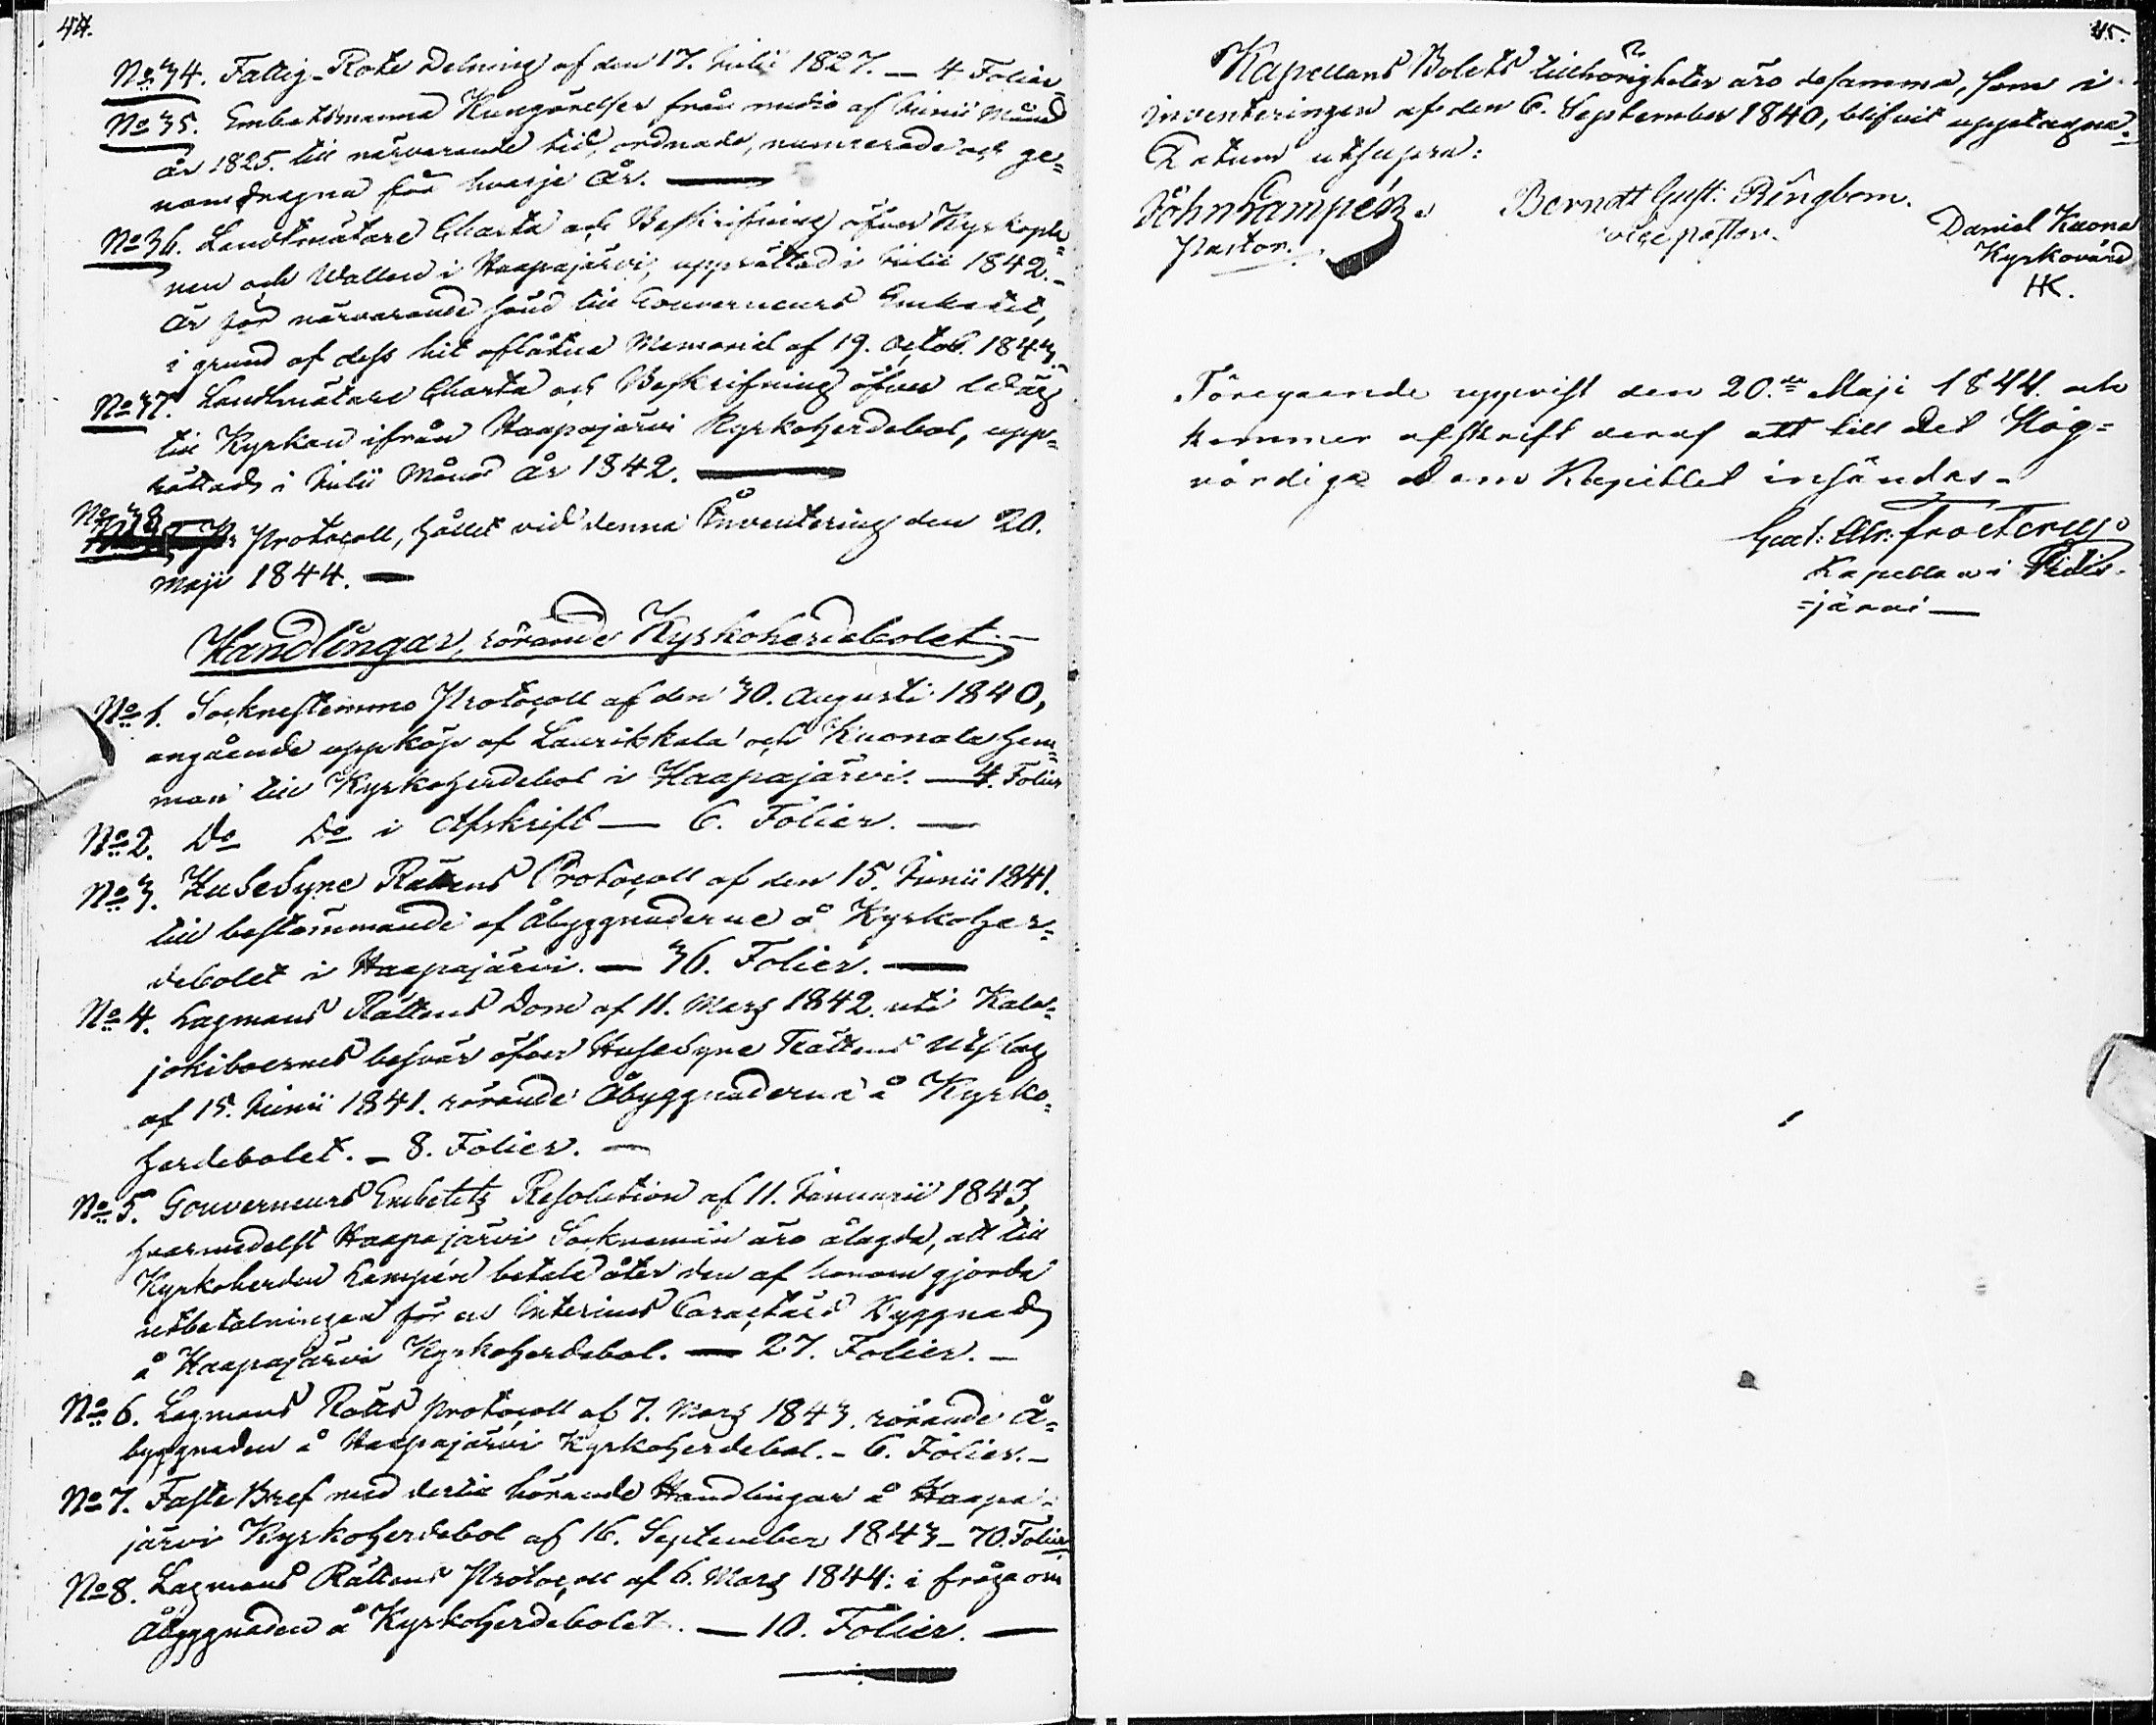 44.
No 34. Fattig-Rote Delning af den 17. Julii 1827. — 4 Folier
No 35. Embetsmanna Kungörelser från medio af Junii Månad
år 1825. till närvarande tid, ordnade, numrerade och ge=
nomdragna för hvarje År. —
No 36. Landtmätare Charta och Beskrifning öfver Kyrkopla=
nen och Wallen i Haapajärvi, upprättad i Julii 1842. –
är för närvarande sänd till Gouverneurs Embetet,
i grund af dess hit aflåtna Memorial af 19. Octob. 1843.
No 37. Landtmätare Charta och Beskrifning öfver
till Kyrkan ifrån Haapajärvi Kyrkoherdebol, upp=
rättad i Julii Månad År 1842. —
No 38 Protocoll, hållet vid denna Inventering den 20.
Maji 1844. —
Handlingar, rörande Kyrkoherdebolet. —
No 1. Socknestemmo Protocoll af den 30. Augusti 1840,
angående uppköp af Laurikkala och Kuonala hem=
man till Kyrkoherdebol i Haapajärvi. — 4. Folier
No 2. Do Do i Afskrift — 6. Folier. —
No 3. HuseSyne Rättens Protocoll af den 15. Junii 1841.
till bestämmande af åbyggnaderne å Kyrkoher=
debolet i Haapajärvi. — 36. Folier. —
No 4. Lagmans Rättens Dom af 11. Mars 1842. uti Kala=
jokiboernes besvär öfver HuseSyne Rättens Utslag
af 15. Junii 1841. rörande Åbyggnaderna å Kyrko=
herdebolet. – 8. Folier. —
No 5. Gouverneurs Embetets Resolution af 11. Januarii 1843,
hvarmedelst Haapajärvi Sockneman äro ålagda, att till
Kyrkoherden Lampén betala åter den af honom gjorda
utbetalningen för en Interims Caractärs Byggnad
å Haapajärvi Kyrkoherdebol. — 27. Folier. —
No 6. Lagmans Rätts Protocoll af 7. Mars 1843. rörande Å=
byggnaden å Haapajärvi Kyrkoherdebol. – 6. Folier. –
No 7. Faste Bref med dertill hörande Handlingar å Haapa=
järvi Kyrkoherdebol af 16. September 1843 – 70. Folier
No 8. Lagmans Rättens Protocoll af 6. Mars 1844: i fråga om
Åbyggnaden å Kyrkoherdebolet. — 10. Folier. —
45.
Kapellans Bolets tillhörigheter äro desamma, som i
inventeringen af den 6. September 1840, blifvit upptagna. –
Datum utsupra:
Joh. Lampén.
Pastor.
Berndt Gust: Ringbom.
vice pastor.
Daniel Kuona
Kyrkovärd
HK.
Föregaende uppvist den 20.de Maji 1844. och
kommer afskrift deraf att till Det Hög=
vördiga Dom Kapitlet insändas –
Gust: Frosterus
Kapellan i Pidis=
=järvi —